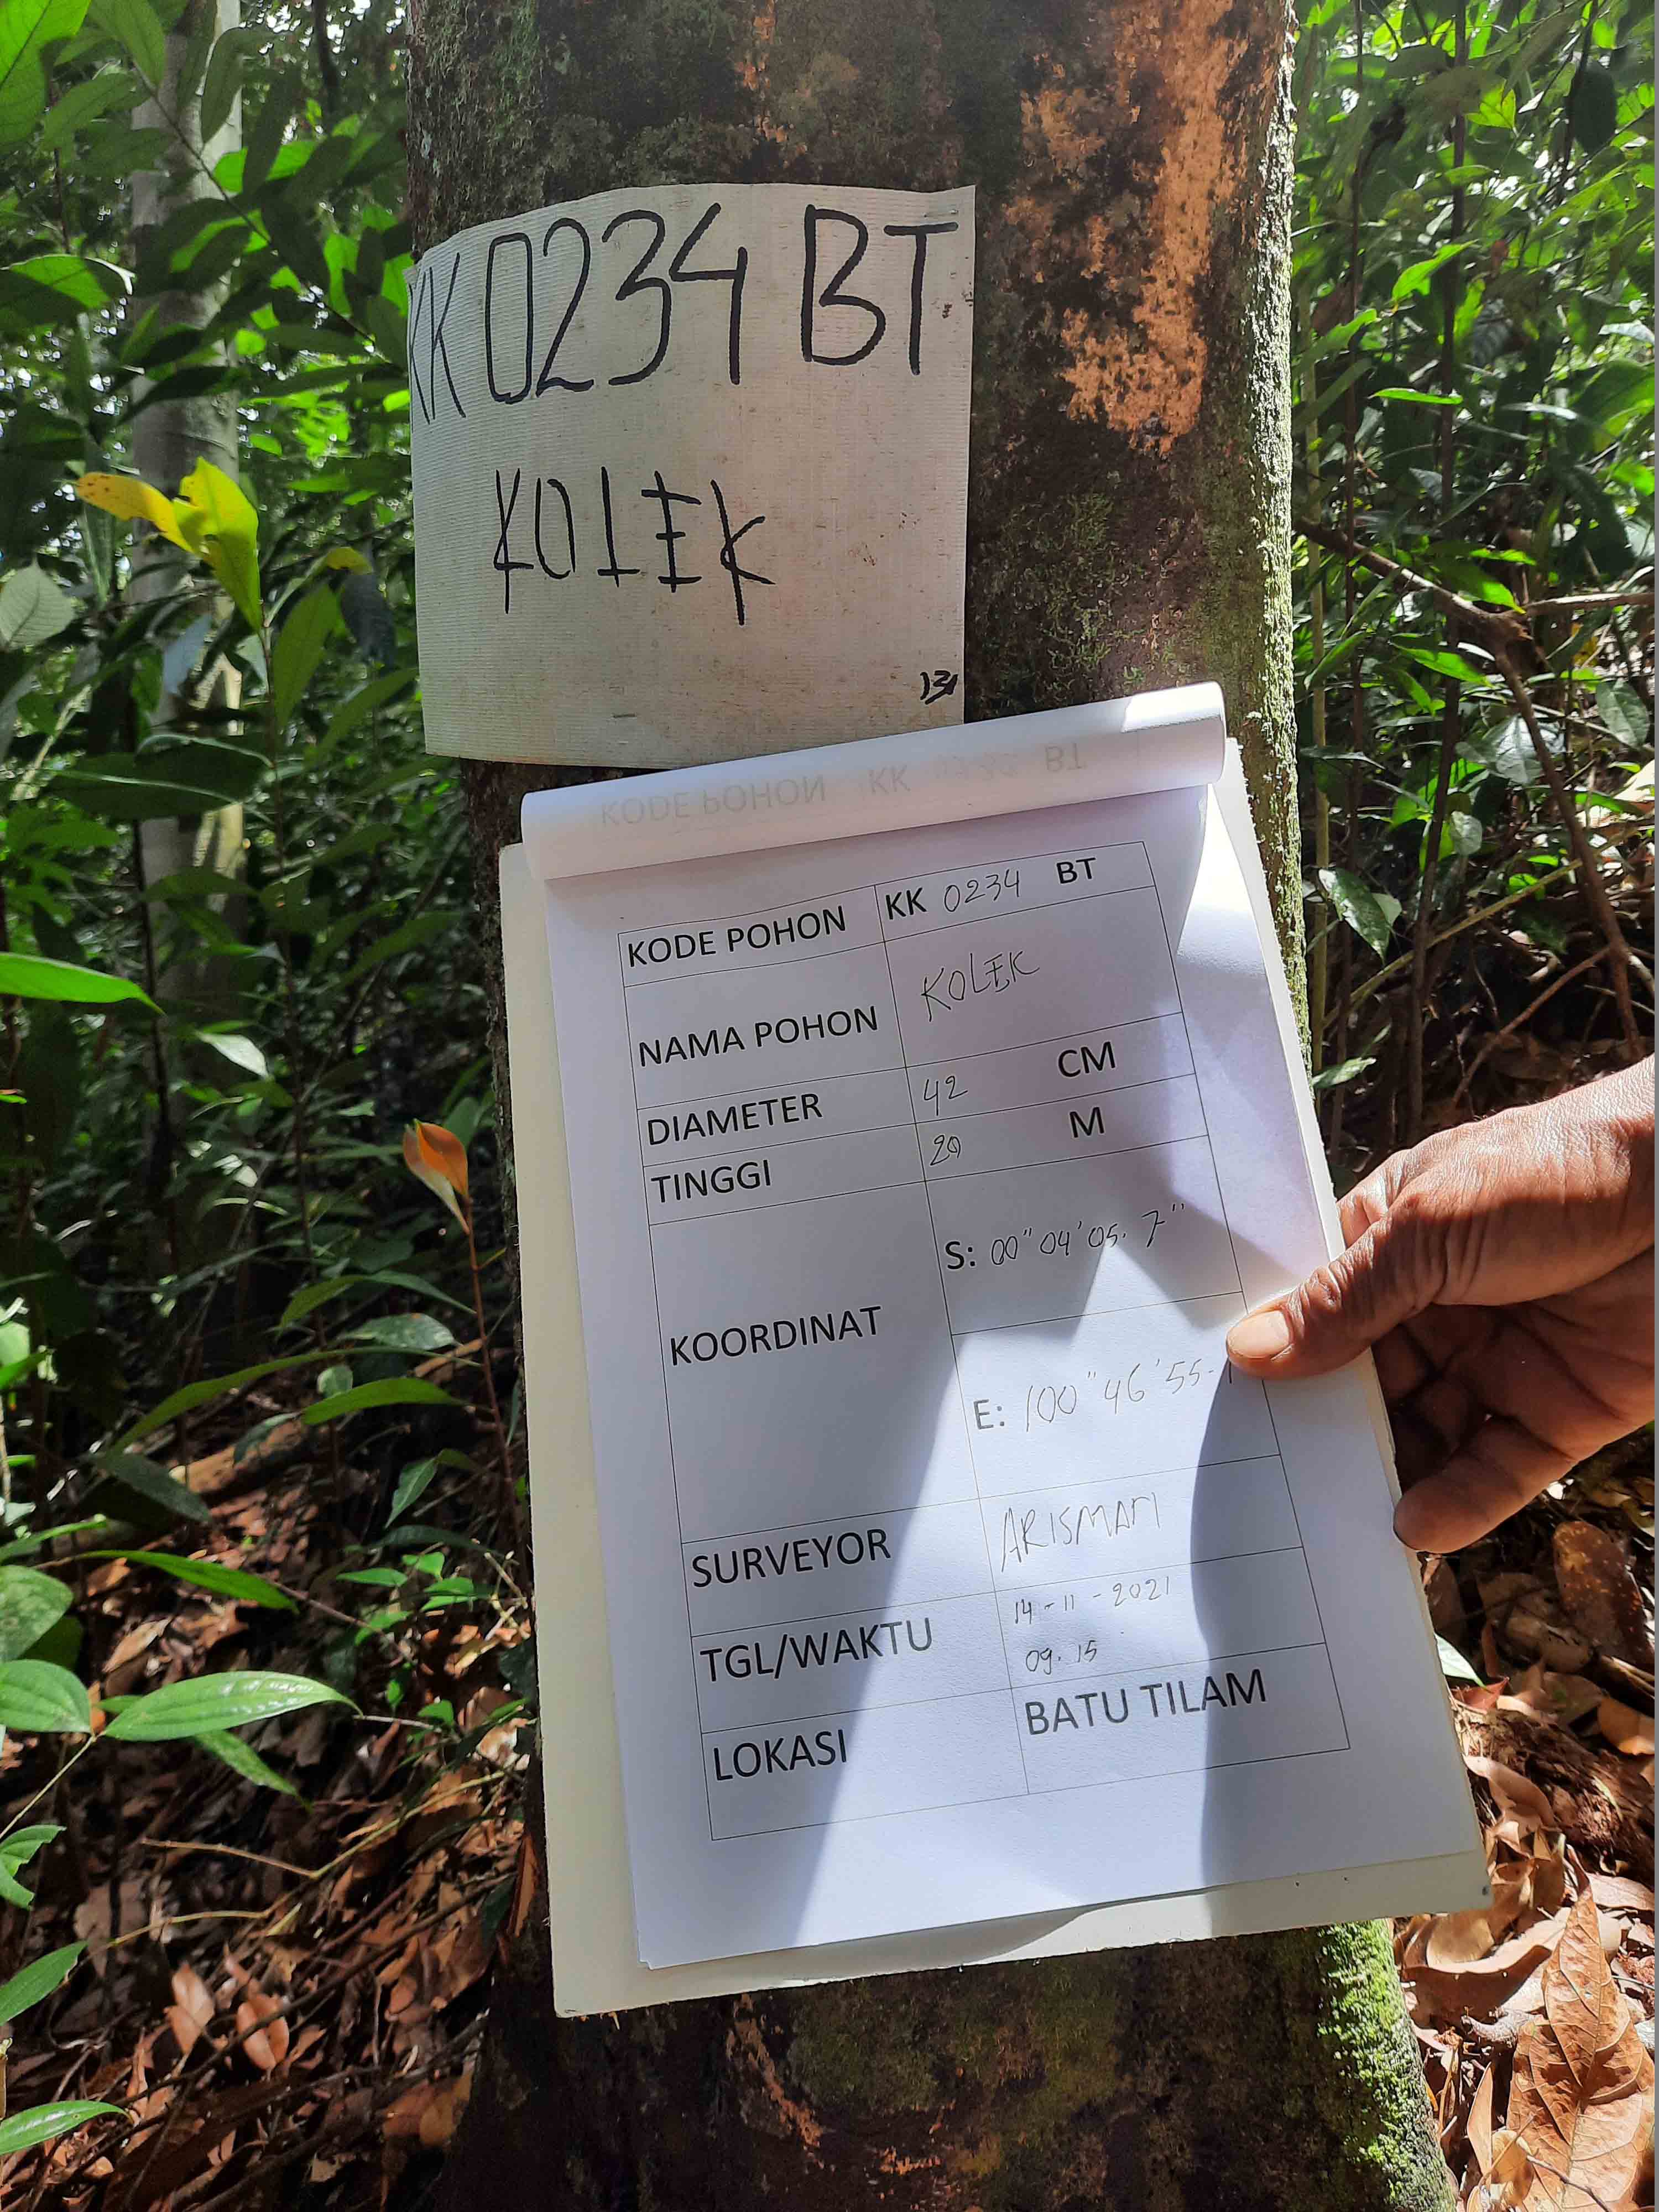 KK 0234 BT
KOLEK
131
KODE POHON KK BT
KODE POHON KK 0234 BT
NAMA POHON KOLEK
DIAMETER 42 CM
TINGGI 20 M
KOORDINAT
S: 00" 04' 05. 7"
E: 100" 46' 55.
SURVEYOR ARISMAN
TGL/WAKTU 14 - 11 - 2021
09. 15
LOKASI BATU TILAM